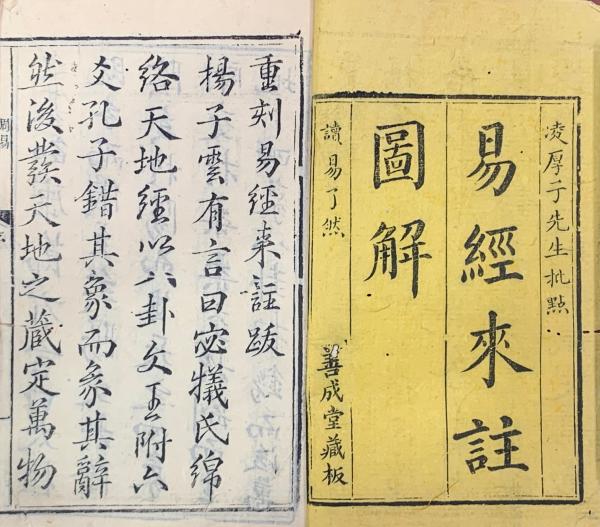 凌厚子先生批點
易經來註
圖解
讀易了然
善成堂藏板
重刻易經来註跋
揚子雲有言曰宓犧氏綿
絡天地經以八卦文王附六
爻孔子錯其象而彖其辭
然後發天地之藏定萬物
周易